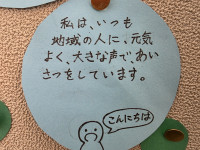 私は、いつも
地域の人に、元気
よく、大きな声で、あい
さつをしています。
こんにちは